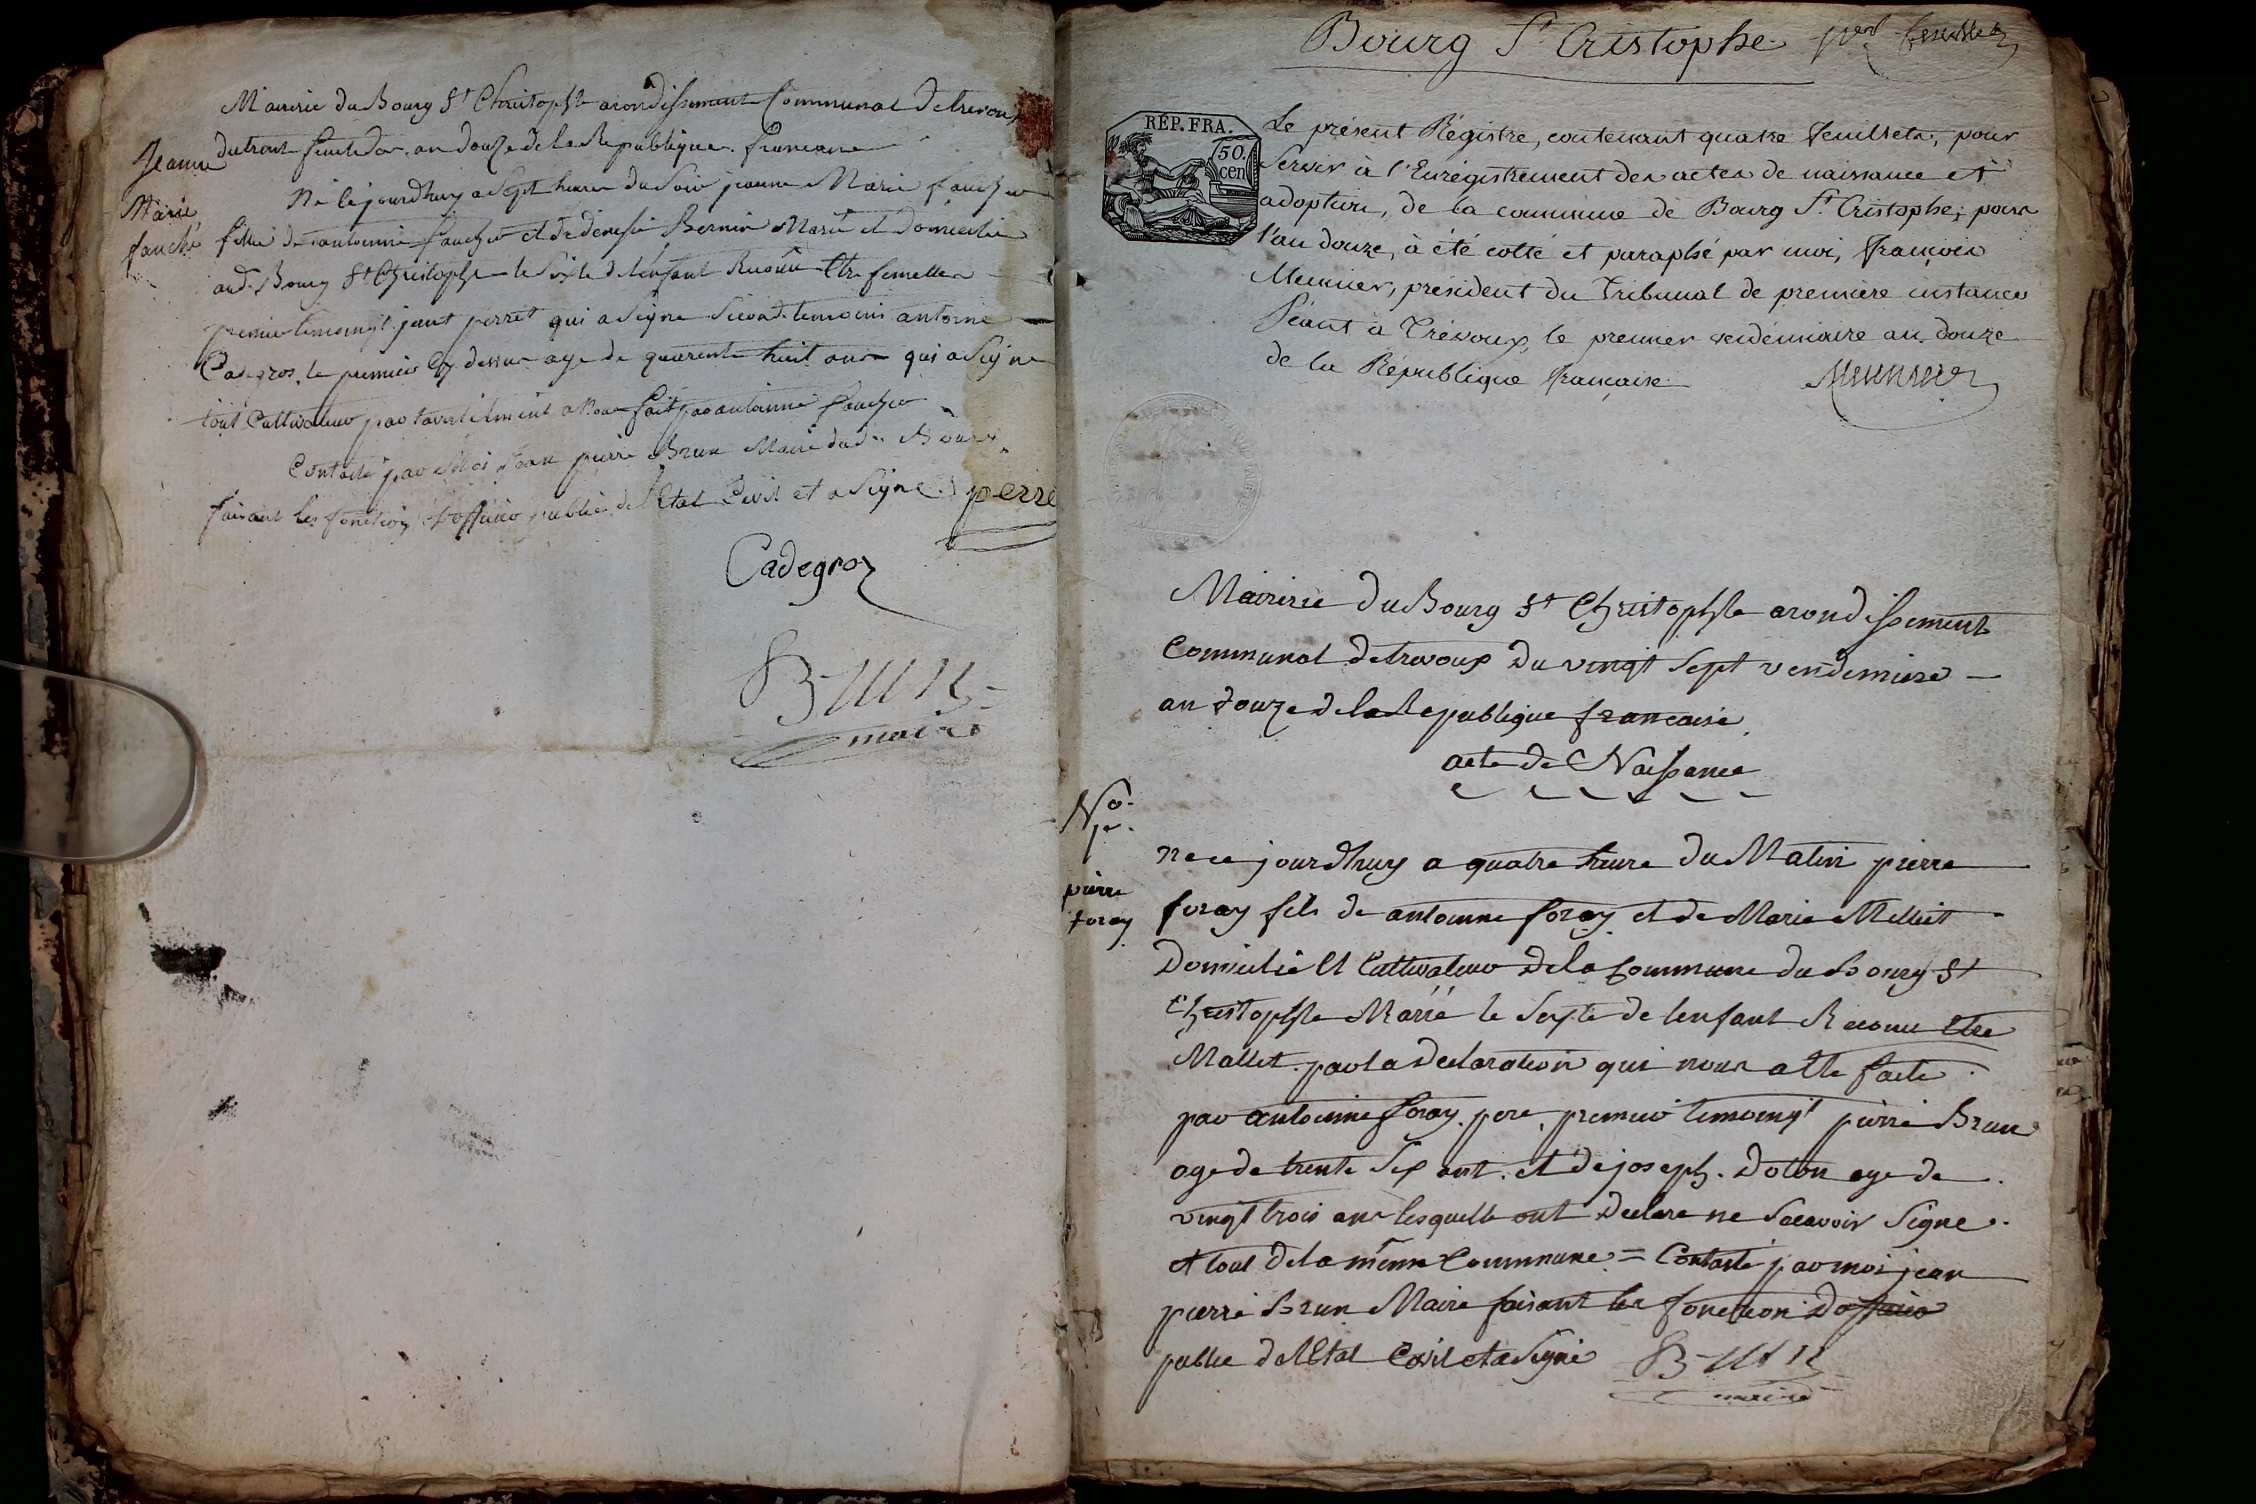 Mairie du Bourg St Christophle arondissement Communal de trevoux
du trente an douze de la Republique francaise
Jeanne
Marie
fauché
Né le jourdhuy a Sept heures du Soir jeanne Marie
fille de antoinne et de Bernin Marié et Domicilié
aud. Bourg St Christophle le Sexte de lenfant Reconu Etre femelle
premier temoingt perret qui a Signe Second temoins antoine
Cadegros le premier Cy dessus age de quarente huit ans qui a Signe
tout Cultivateur fait par antoinne
Contasté par Moi Jean pierre Brun Maire dud. Bourg
faisant les fonction d'officier public de l'Etat Civil et a Signé perre
Cadegroz
Brun
maire
Bourg St Cristophe per feuillet
RÉP. FRA.
50. cen
Le présent Régistre, contenant quatre feuillets, pour
Servir à l'Enrégistrement des actes de naissance et
adoption, de la commune de Bourg St Cristophe; pour
l'an douze, à été cotté et paraphé par moi, françois
Meunier, président du Tribunal de première instance
Séant à Trévoux, le premier vendémiaire an douze
de la République française
Meunier
Mairie du Bourg St Christophle arondissement
Communal de trevoux Du vingt Sept vendemiere
an douze de la Republique francaise
acte de Naissance
No. 1er.
pierre
foray
ne ce jourdhuy a quatre heure du Matin pierre
foray fils de antoinne foray et de Marie Melliet
Domicilié Et Cultivateur de la Commune du Bourg St
Christophle Marié le Sexte de lenfant Reconu Etre
Mallet par la Declaration qui nous a Ete faite
par antoinne foray pere, premier temoingt pierre Brun
age de trente Six ant. et de joseph. Dolon age de
vingt trois ans lesquelle ont Declare ne Scavoir Signe
et tout de la même Commune = Contasté par moi jean
pierre Brun Maire faisant les fonction Dofficier
public de lEtat Civil et a Signé Brun
maire